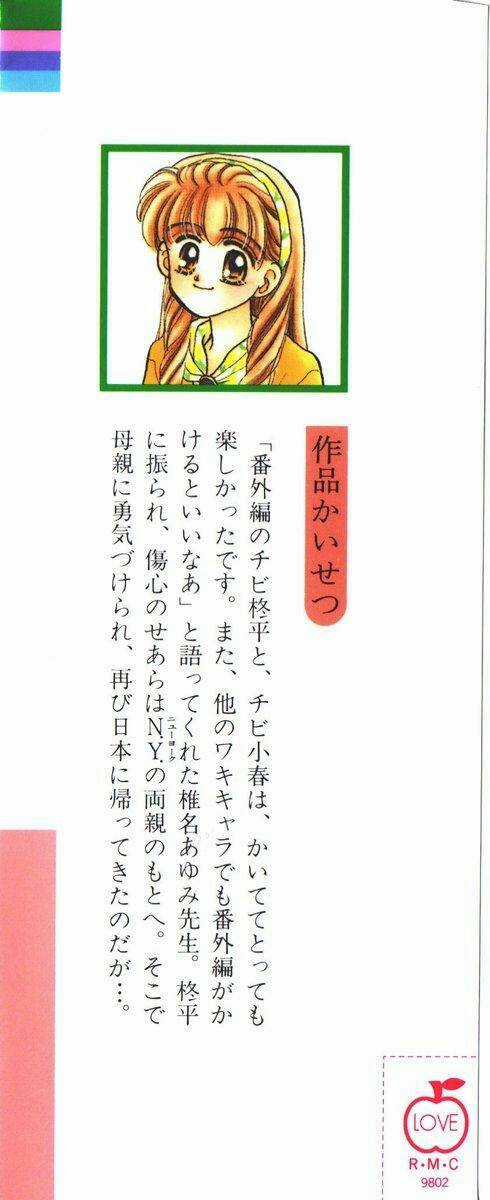 作品かいせつ
「番外編のチビ柊平と、チビ小春は、かいててとっても
楽しかったです。また、他のワキキャラでも番外編がか
けるといいなあ」と語ってくれた椎名あゆみ先生。柊平
に振られ、傷心のせあらはN.Y.の両親のもとへ。そこで
ニューヨーク
母親に勇気づけられ、再び日本に帰ってきたのだが…。
LOVE
R・M・C
9802